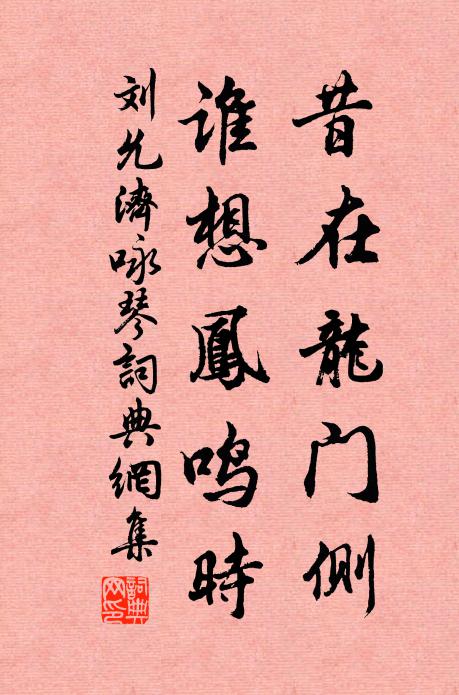 昔在龍门側
谁想鳳鸣時
刘允濟咏琴詞典網集
詞典网印